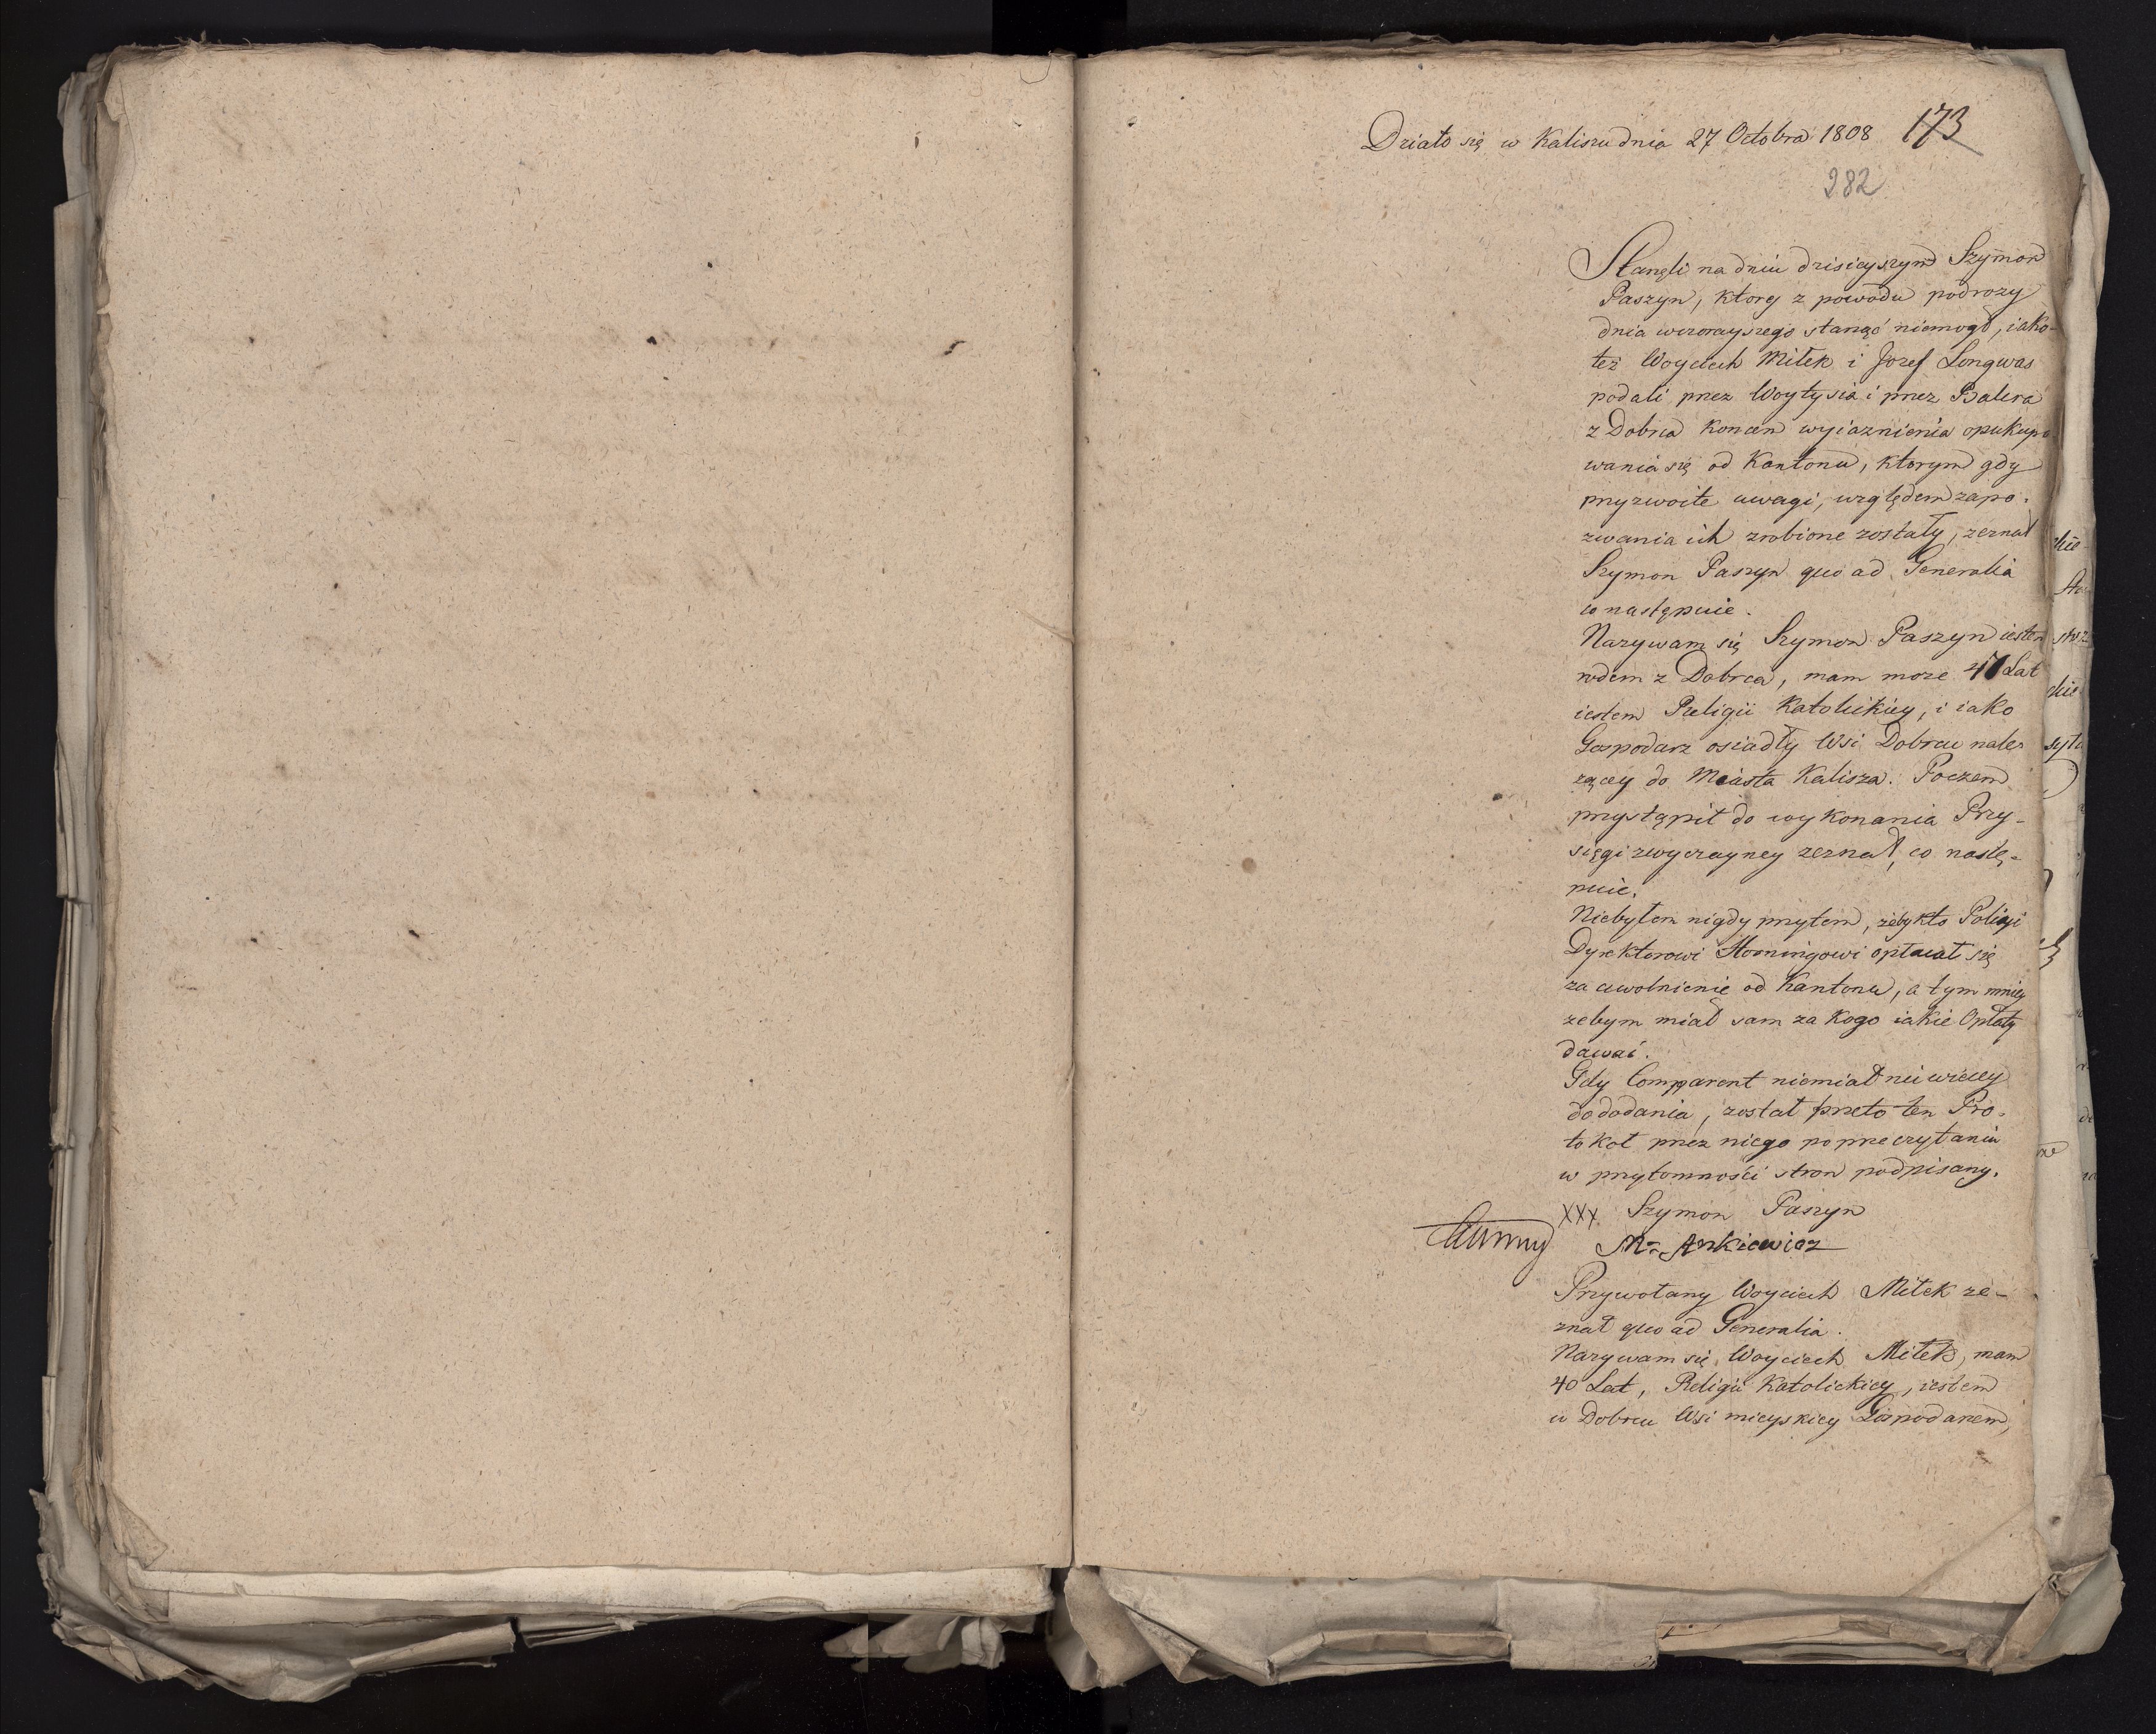 Działo się w Kaliszu dnia 27 Octobra 1808 173
282
Stanęli na dniu dzisieyszym Szymon
Paszyn, ktory z powodu podrozy
dnia wczorayszego stanąć niemogł, iako-
też Woyciech Miłek i Jozef Longwas
podali przez Woytysia i przez Balera
z Dobrca koncem wyiaznienia opukupo
wania się od Kantonu, ktorym gdy
przyzwoite uwagi, względem zapo-
zwania ich zrobione zostały, zeznał
Szymon Paszyn quo ad Generalia
co następuie.
Nazywam się Szymon Paszyn iestem
rodem z Dobrca, mam może 47 Lat
iestem Religii Katolickiey, i iako
Gospodarz osiadły Wsi Dobrcu nale-
zącey do Miasta Kalisza. Poczem
przystąpił do wykonania Przy-
sięgi zwyczayney zeznał, co nastę-
puie.
Niebyłem nigdy przytem, żeby kto Policyi
Dyrektorowi Horningowi opłacał się
za uwolnienie od Kantonu, a tym mniey
zebym miał sam za kogo iakie Opłaty
dawać.
Gdy Comparent niemiał nic więcey
do dodania, został przeto ten Pro-
tokoł przez niego po przeczytaniu
w przytomności stron podpisany.
XXX Szymon Paszyn
Mr. Ankiewicz
Przywołany Woyciech Miłek ze-
znał quo ad Generalia.
Nazywam się Woyciech Miłek, mam
40 Lat, Religii Katolickiey, iestem
w Dobrcu Wsi mieyskiey Gospodarzem,